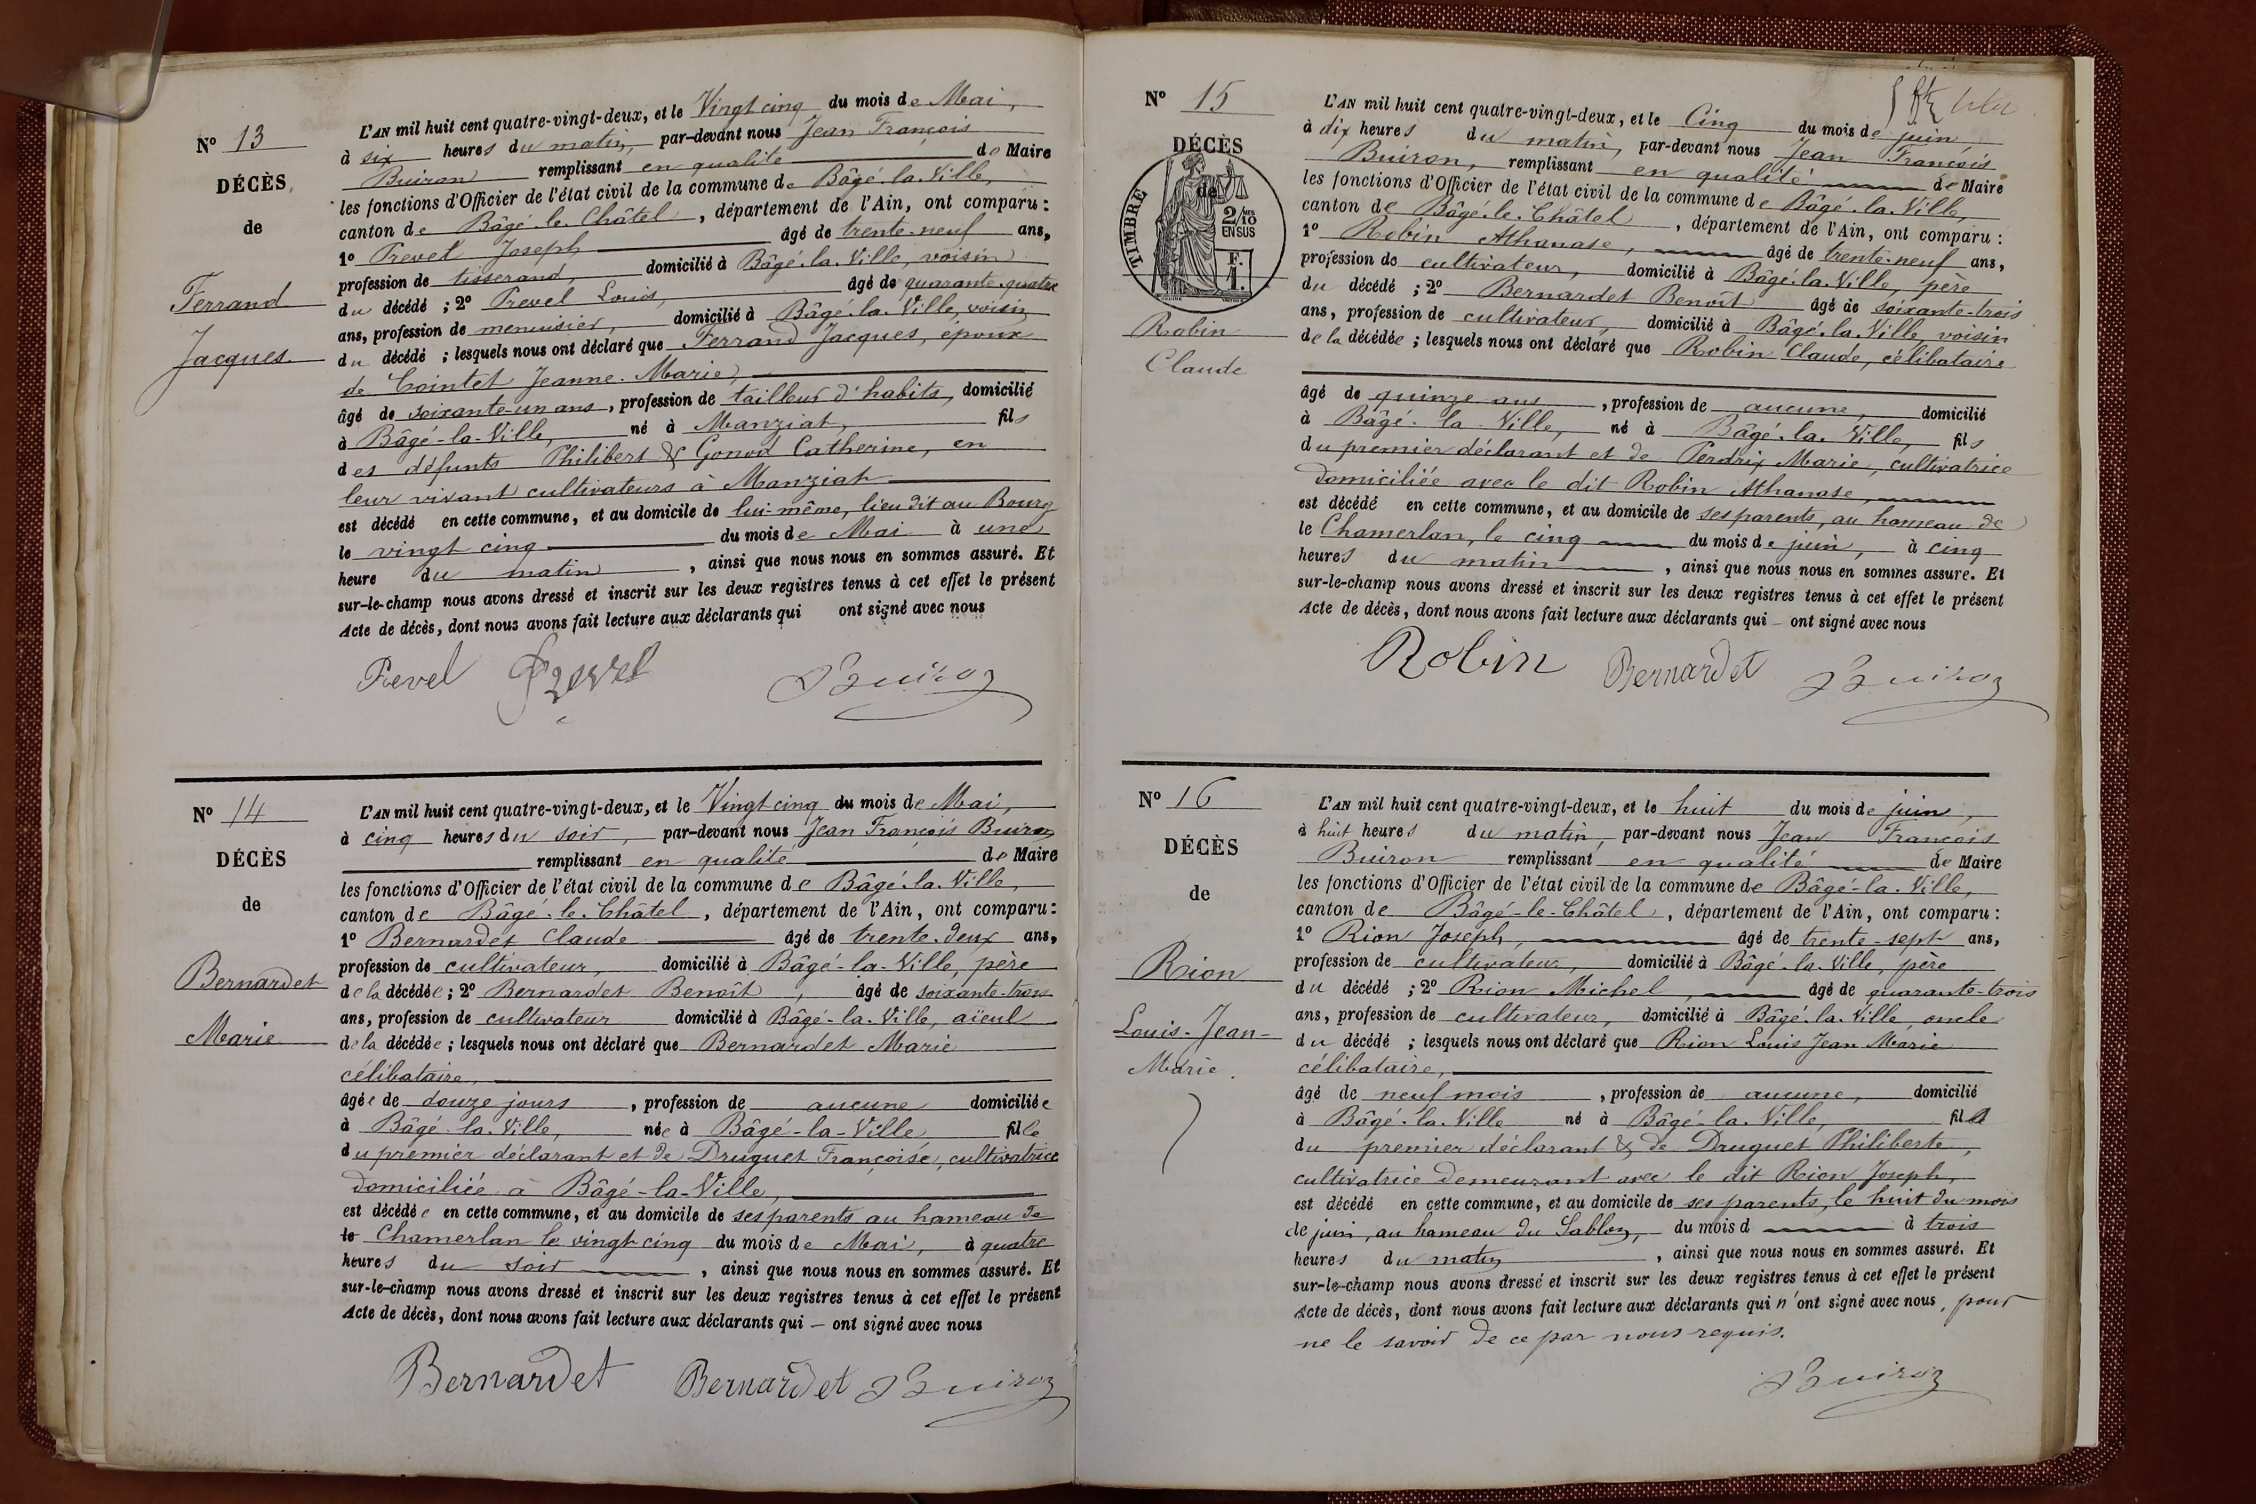 N° 13
DÉCÈS
de
Ferrand
Jacques
L'AN mil huit cent quatre-vingt-deux, et le Vingt cinq du mois de Mai,
à six heures du matin, par-devant nous Jean François
Buiron remplissant en qualité de Maire
les fonctions d'Officier de l'état civil de la commune de Bâgé-la-Ville,
canton de Bâgé-le-Châtel, département de l'Ain, ont comparu :
1° Prevel Joseph âgé de trente-neuf ans,
profession de tisserand, domicilié à Bâgé-la-Ville, voisin
du décédé ; 2° Prevel Louis, âgé de quarante-quatre
ans, profession de menuisier, domicilié à Bâgé-la-Ville, voisin
du décédé ; lesquels nous ont déclaré que Ferrand Jacques, époux
de Cointet Jeanne-Marie,
âgé de soixante-un ans, profession de tailleur d'habits, domicilié
à Bâgé-la-Ville, né à Manziat, fils
des défunts Philibert & Gonod Catherine, en
leur vivant cultivateurs à Manziat
est décédé en cette commune, et au domicile de lui-même, lieu dit au Bourg
le vingt cinq du mois de Mai à une
heure du matin, ainsi que nous nous en sommes assuré. Et
sur-le-champ nous avons dressé et inscrit sur les deux registres tenus à cet effet le présent
Acte de décès, dont nous avons fait lecture aux déclarants qui ont signé avec nous
Prevel Prevel JBuiron
N° 14
DÉCÈS
de
Bernardet
Marie
L'AN mil huit cent quatre-vingt-deux, et le Vingt cinq du mois de Mai,
à cinq heures du soir, par-devant nous Jean François Buiron
remplissant en qualité de Maire
les fonctions d'Officier de l'état civil de la commune de Bâgé-la-Ville,
canton de Bâgé-le-Châtel, département de l'Ain, ont comparu :
1° Bernardet Claude âgé de trente-deux ans,
profession de cultivateur, domicilié à Bâgé-la-Ville, père
de la décédée ; 2° Bernardet Benoît, âgé de soixante-trois
ans, profession de cultivateur domicilié à Bâgé-la-Ville, aïeul
de la décédée ; lesquels nous ont déclaré que Bernardet Marie
célibataire,
âgée de douze jours, profession de aucune domiciliée
à Bâgé-la-Ville, née à Bâgé-la-Ville fille
du premier déclarant et de Druguet Françoise, cultivatrice
domiciliée à Bâgé-la-Ville,
est décédée en cette commune, et au domicile de ses parents au hameau de
le Chamerlan le vingt cinq du mois de Mai, à quatre
heures du soir, ainsi que nous nous en sommes assuré. Et
sur-le-champ nous avons dressé et inscrit sur les deux registres tenus à cet effet le présent
Acte de décès, dont nous avons fait lecture aux déclarants qui — ont signé avec nous
Bernardet Bernardet JBuiron
N° 15
DÉCÈS
de
TIMBRE
2/10 MES
EN SUS
F.
1.
Robin
Claude
L'AN mil huit cent quatre-vingt-deux, et le Cinq du mois de juin
à dix heures du matin, par-devant nous Jean François
Buiron, remplissant en qualité de Maire
les fonctions d'Officier de l'état civil de la commune de Bâgé-la-Ville,
canton de Bâgé-le-Châtel, département de l'Ain, ont comparu :
1° Robin Athanase, âgé de trente-neuf ans,
profession de cultivateur, domicilié à Bâgé-la-Ville, père
du décédé ; 2° Bernardet Benoît âgé de soixante-trois
ans, profession de cultivateur, domicilié à Bâgé-la-Ville voisin
de la décédée ; lesquels nous ont déclaré que Robin Claude, célibataire
âgé de quinze ans, profession de aucune, domicilié
à Bâgé-la-Ville, né à Bâgé-la-Ville, fils
du premier déclarant et de Perdrix Marie, cultivatrice
domiciliée avec le dit Robin Athanase,
est décédé en cette commune, et au domicile de ses parents, au hameau de
le Chamerlan, le cinq du mois de juin, à cinq
heures du matin, ainsi que nous nous en sommes assuré. Et
sur-le-champ nous avons dressé et inscrit sur les deux registres tenus à cet effet le présent
Acte de décès, dont nous avons fait lecture aux déclarants qui — ont signé avec nous
Robin Bernardet JBuiron
N° 16
DÉCÈS
de
Rion
Louis-Jean-
Marie.
L'AN mil huit cent quatre-vingt-deux, et le huit du mois de juin,
à huit heures du matin, par-devant nous Jean François
Buiron remplissant en qualité de Maire
les fonctions d'Officier de l'état civil de la commune de Bâgé-la-Ville,
canton de Bâgé-le-Châtel, département de l'Ain, ont comparu :
1° Rion Joseph, âgé de trente-sept ans,
profession de cultivateur, domicilié à Bâgé-la-Ville, père
du décédé ; 2° Rion Michel, âgé de quarante-trois
ans, profession de cultivateur, domicilié à Bâgé-la-Ville oncle
du décédé ; lesquels nous ont déclaré que Rion Louis Jean Marie
célibataire,
âgé de neuf mois, profession de aucune, domicilié
à Bâgé-la-Ville né à Bâgé-la-Ville, fils
du premier déclarant & de Druguet Philiberte,
cultivatrice demeurant avec le dit Rion Joseph,
est décédé en cette commune, et au domicile de ses parents, le huit du mois
de juin, au hameau du Sablon, du mois d à trois
heures du matin, ainsi que nous nous en sommes assuré. Et
sur-le-champ nous avons dressé et inscrit sur les deux registres tenus à cet effet le présent
Acte de décès, dont nous avons fait lecture aux déclarants qui n'ont signé avec nous, pour
ne le savoir de ce par nous requis.
JBuiron